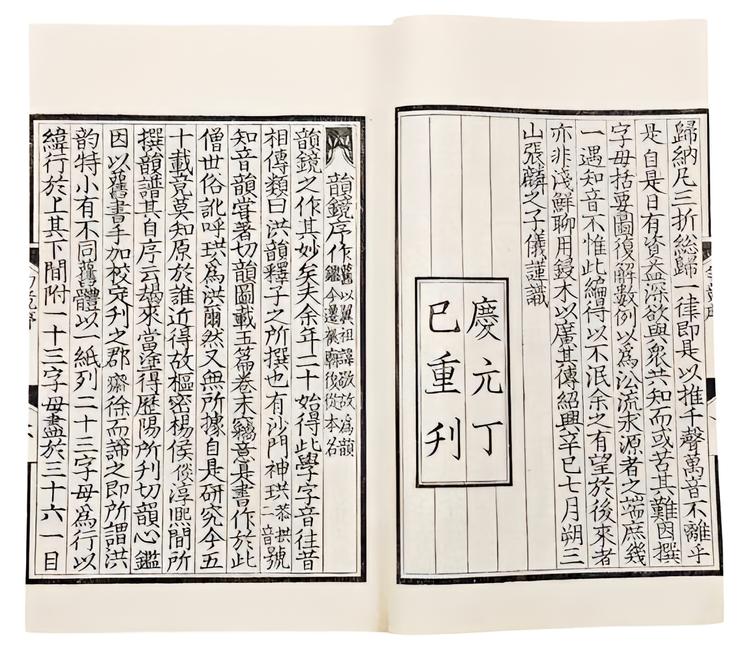 歸納凡三折總歸一律即是以推千聲萬音不離乎
是自是日有資益深欲與衆共知而或苦其難因撰
字母括要圖復解數例以爲沿流求源者之端庶幾
一遇知音不惟此編得以不泯余之有望於後來者
亦非淺鮮聊用鋟木以廣其傳紹興辛巳七月朔三
山張麟之子儀謹識
慶元丁
巳重刋
韻鏡序作 舊以翼祖諱敬故爲韻鑑今遷祧廟復從本名
韻鏡之作其妙矣夫余年二十始得此學字音往昔
相傳類曰洪韻釋子之所撰也有沙門神珙恭拱二音號
知音韻甞著切韻圖載玉篇卷末竊意是書作於此
僧世俗訛呼珙爲洪爾然又無所據自是研究今五
十載竟莫知原於誰近得故樞密楊侯倓淳熙間所
撰韻譜其自序云朅來當塗得歷陽所刋切韻心鑑
因以舊書手加校定刋之郡齋徐而諦之即所謂洪
韵特小有不同舊體以一紙列二十三字母爲行以
緯行於上其下間附一十三字母盡於三十六一目